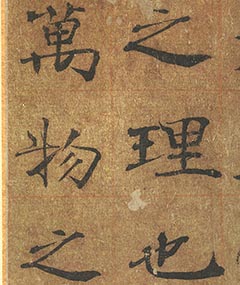 之理也
萬物之